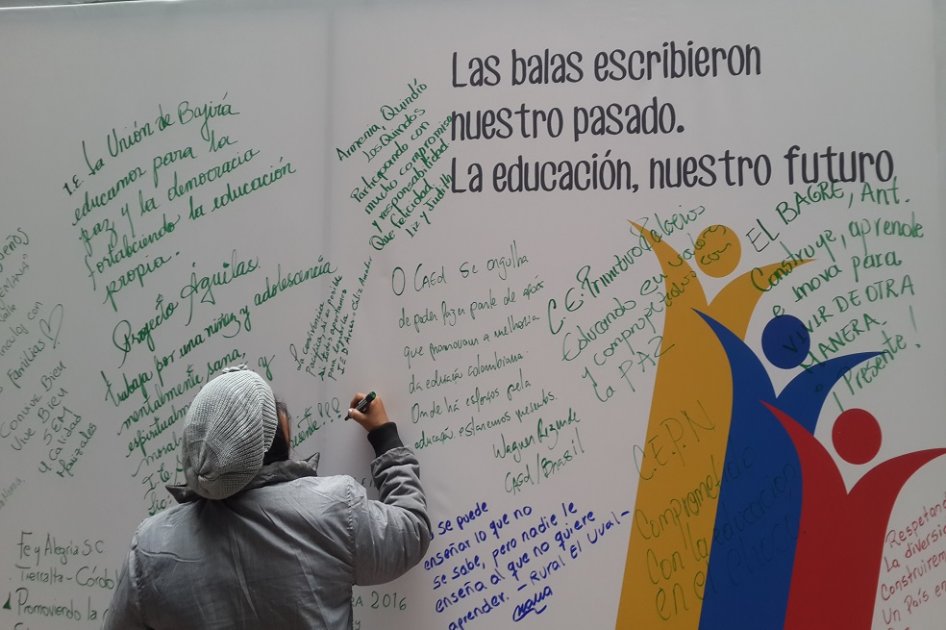 Las balas escribieron
nuestro pasado.
La educación, nuestro futuro
I.E. La Unión de Bajirá
educamos para la
paz y la democracia
fortaleciendo la educación
propia.
Proyecto Águilas.
trabaja por una niñez y adolescencia
mentalmente sana,
Armenia, Quindío
Los Quindos
Participando con
mucho compromiso
y responsabilidad
Que felicidad
Liz y Judith
O CAEd se orgulha
de poder fazer parte de ações
que promovam a melhoria
da educação colombiana.
Onde há esforços pela
educação estaremos presentes.
Wagner Rezende
CAEd/Brasil
C.E. Primitivo Palacios
Educando en valores
y comprometidos con
la PAZ
EL BAGRE, Ant.
Construye, aprende
e innova para
VIVIR DE OTRA
MANERA.
¡Presente!
C.E.P.N
Comprometido
Con la educación
en el
se puede
enseñar lo que no
se sabe, pero nadie le
enseña al que no quiere
aprender. - Rural "El Uval" -
Familias
Convive Bien
Vive Bien
SEM
y Calidad
Manizales
Fe y Alegría S.C.
Tierralta - Córdo
Promoviendo la
2016
Respetand
La diversid
Construirem
Un País en